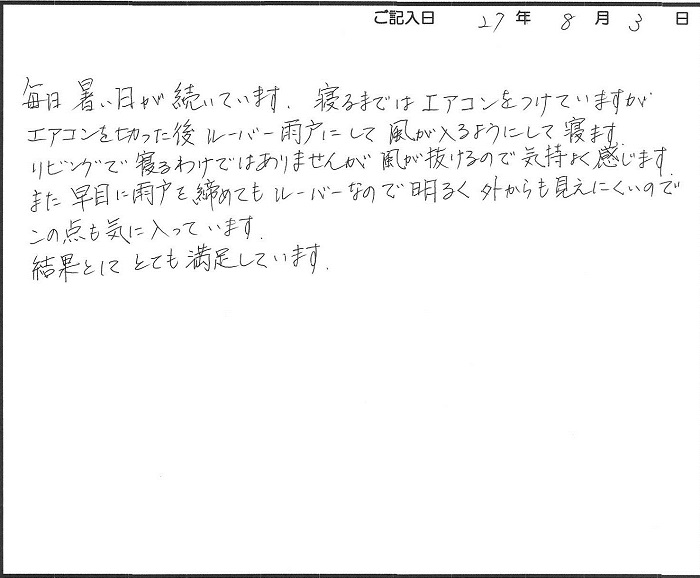 ご記入日 27 年 8 月 3 日
毎日 暑い日が 続いています. 寝るまでは エアコンをつけていますが
エアコンを切った後 ルーバー雨戸にして 風が入るようにして 寝ます.
リビングで 寝るわけではありませんが 風が抜けるので 気持よく 感じます.
また 早目に雨戸を 締めても ルーバーなので 明るく 外からも 見えにくいので
この点も 気に入っています.
結果として とても 満足しています.